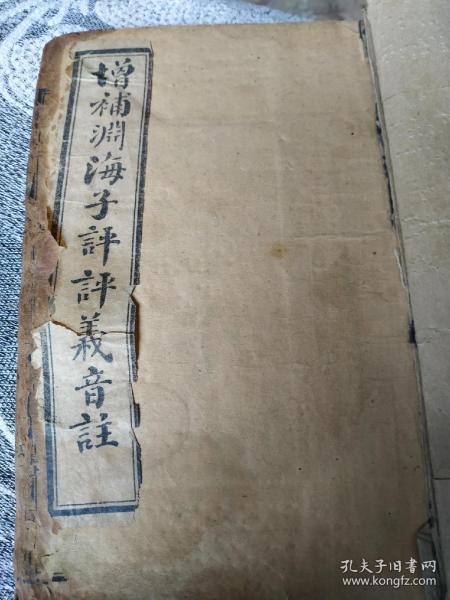 增補淵海子評評義音註
孔夫子旧书网
www.kongfz.com